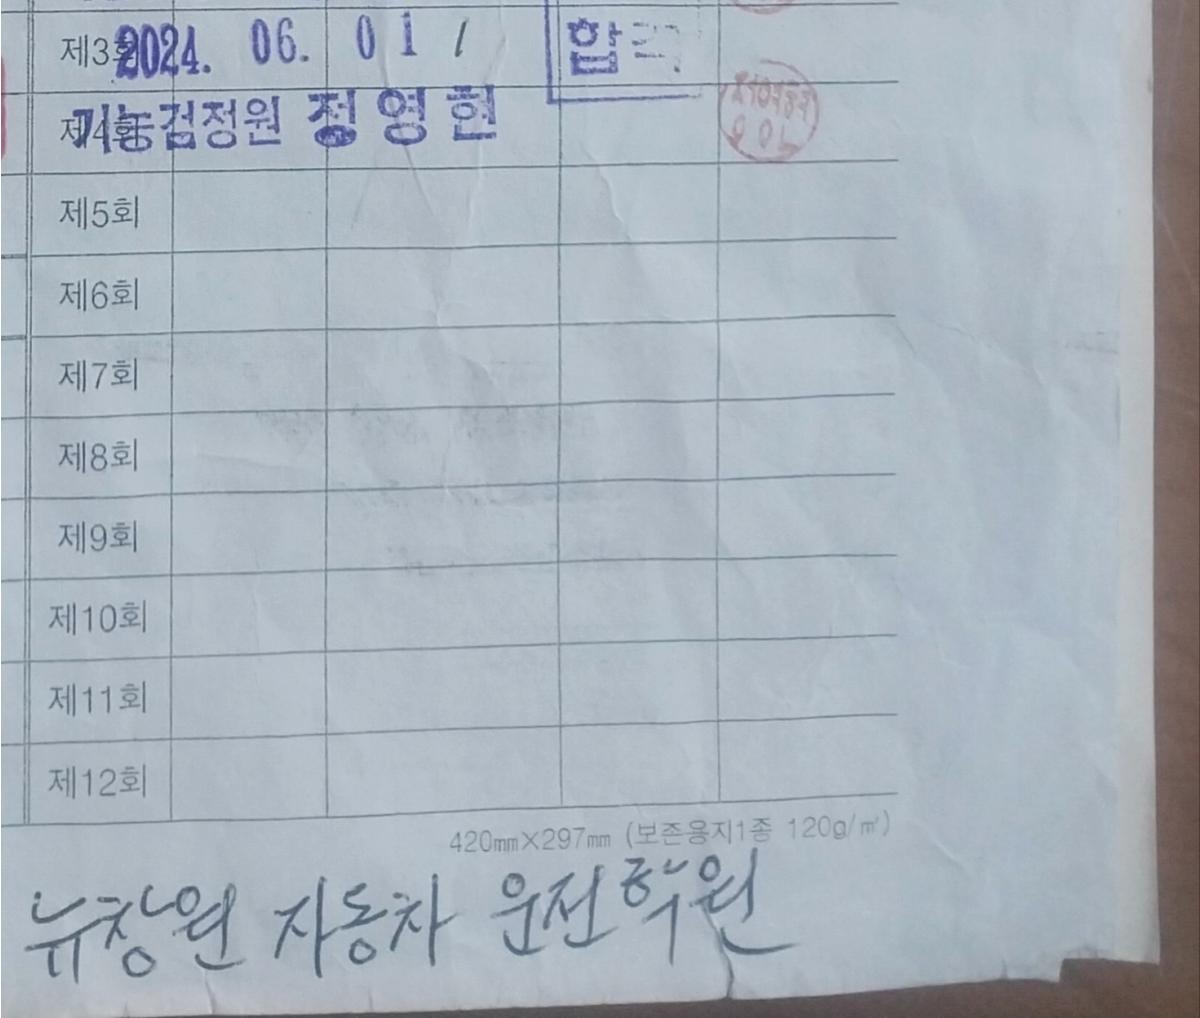 제3회 2024. 06. 01 / 합격
제4회 기능검정원 정영현
제5회
제6회
제7회
제8회
제9회
제10회
제11회
제12회
420mm×297mm (보존용지1종 120g/㎡)
뉴창원 자동차 운전학원